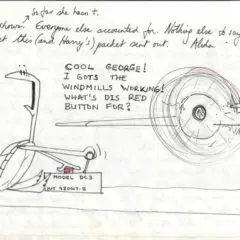 so far she hasn't.
shown. Everyone else accounted for. Nothing else to say
get this (and Harry's) packet sent out. Aloha.
COOL GEORGE!
I GOTS THE
WINDMILLS WORKING!
WHAT'S DIS RED
BUTTON FOR?
MODEL DC3